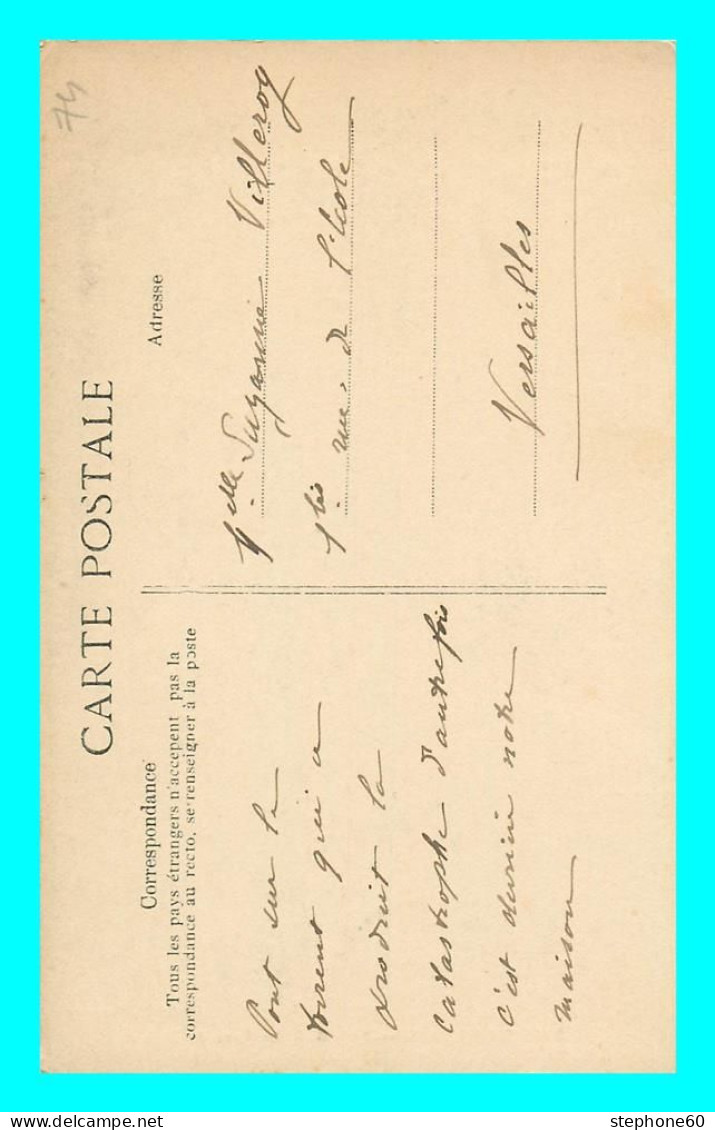 74
CARTE POSTALE
Correspondance
Tous les pays étrangers n'accepent pas la
correspondance au recto, se renseigner à la poste
Pont sur le
torrent qui a
produit la
catastrophe d'autrefois
c'est derrière notre
maison
Adresse
Melle Suzanne Villeroy
1bis rue de l'école
Versailles
stephone60